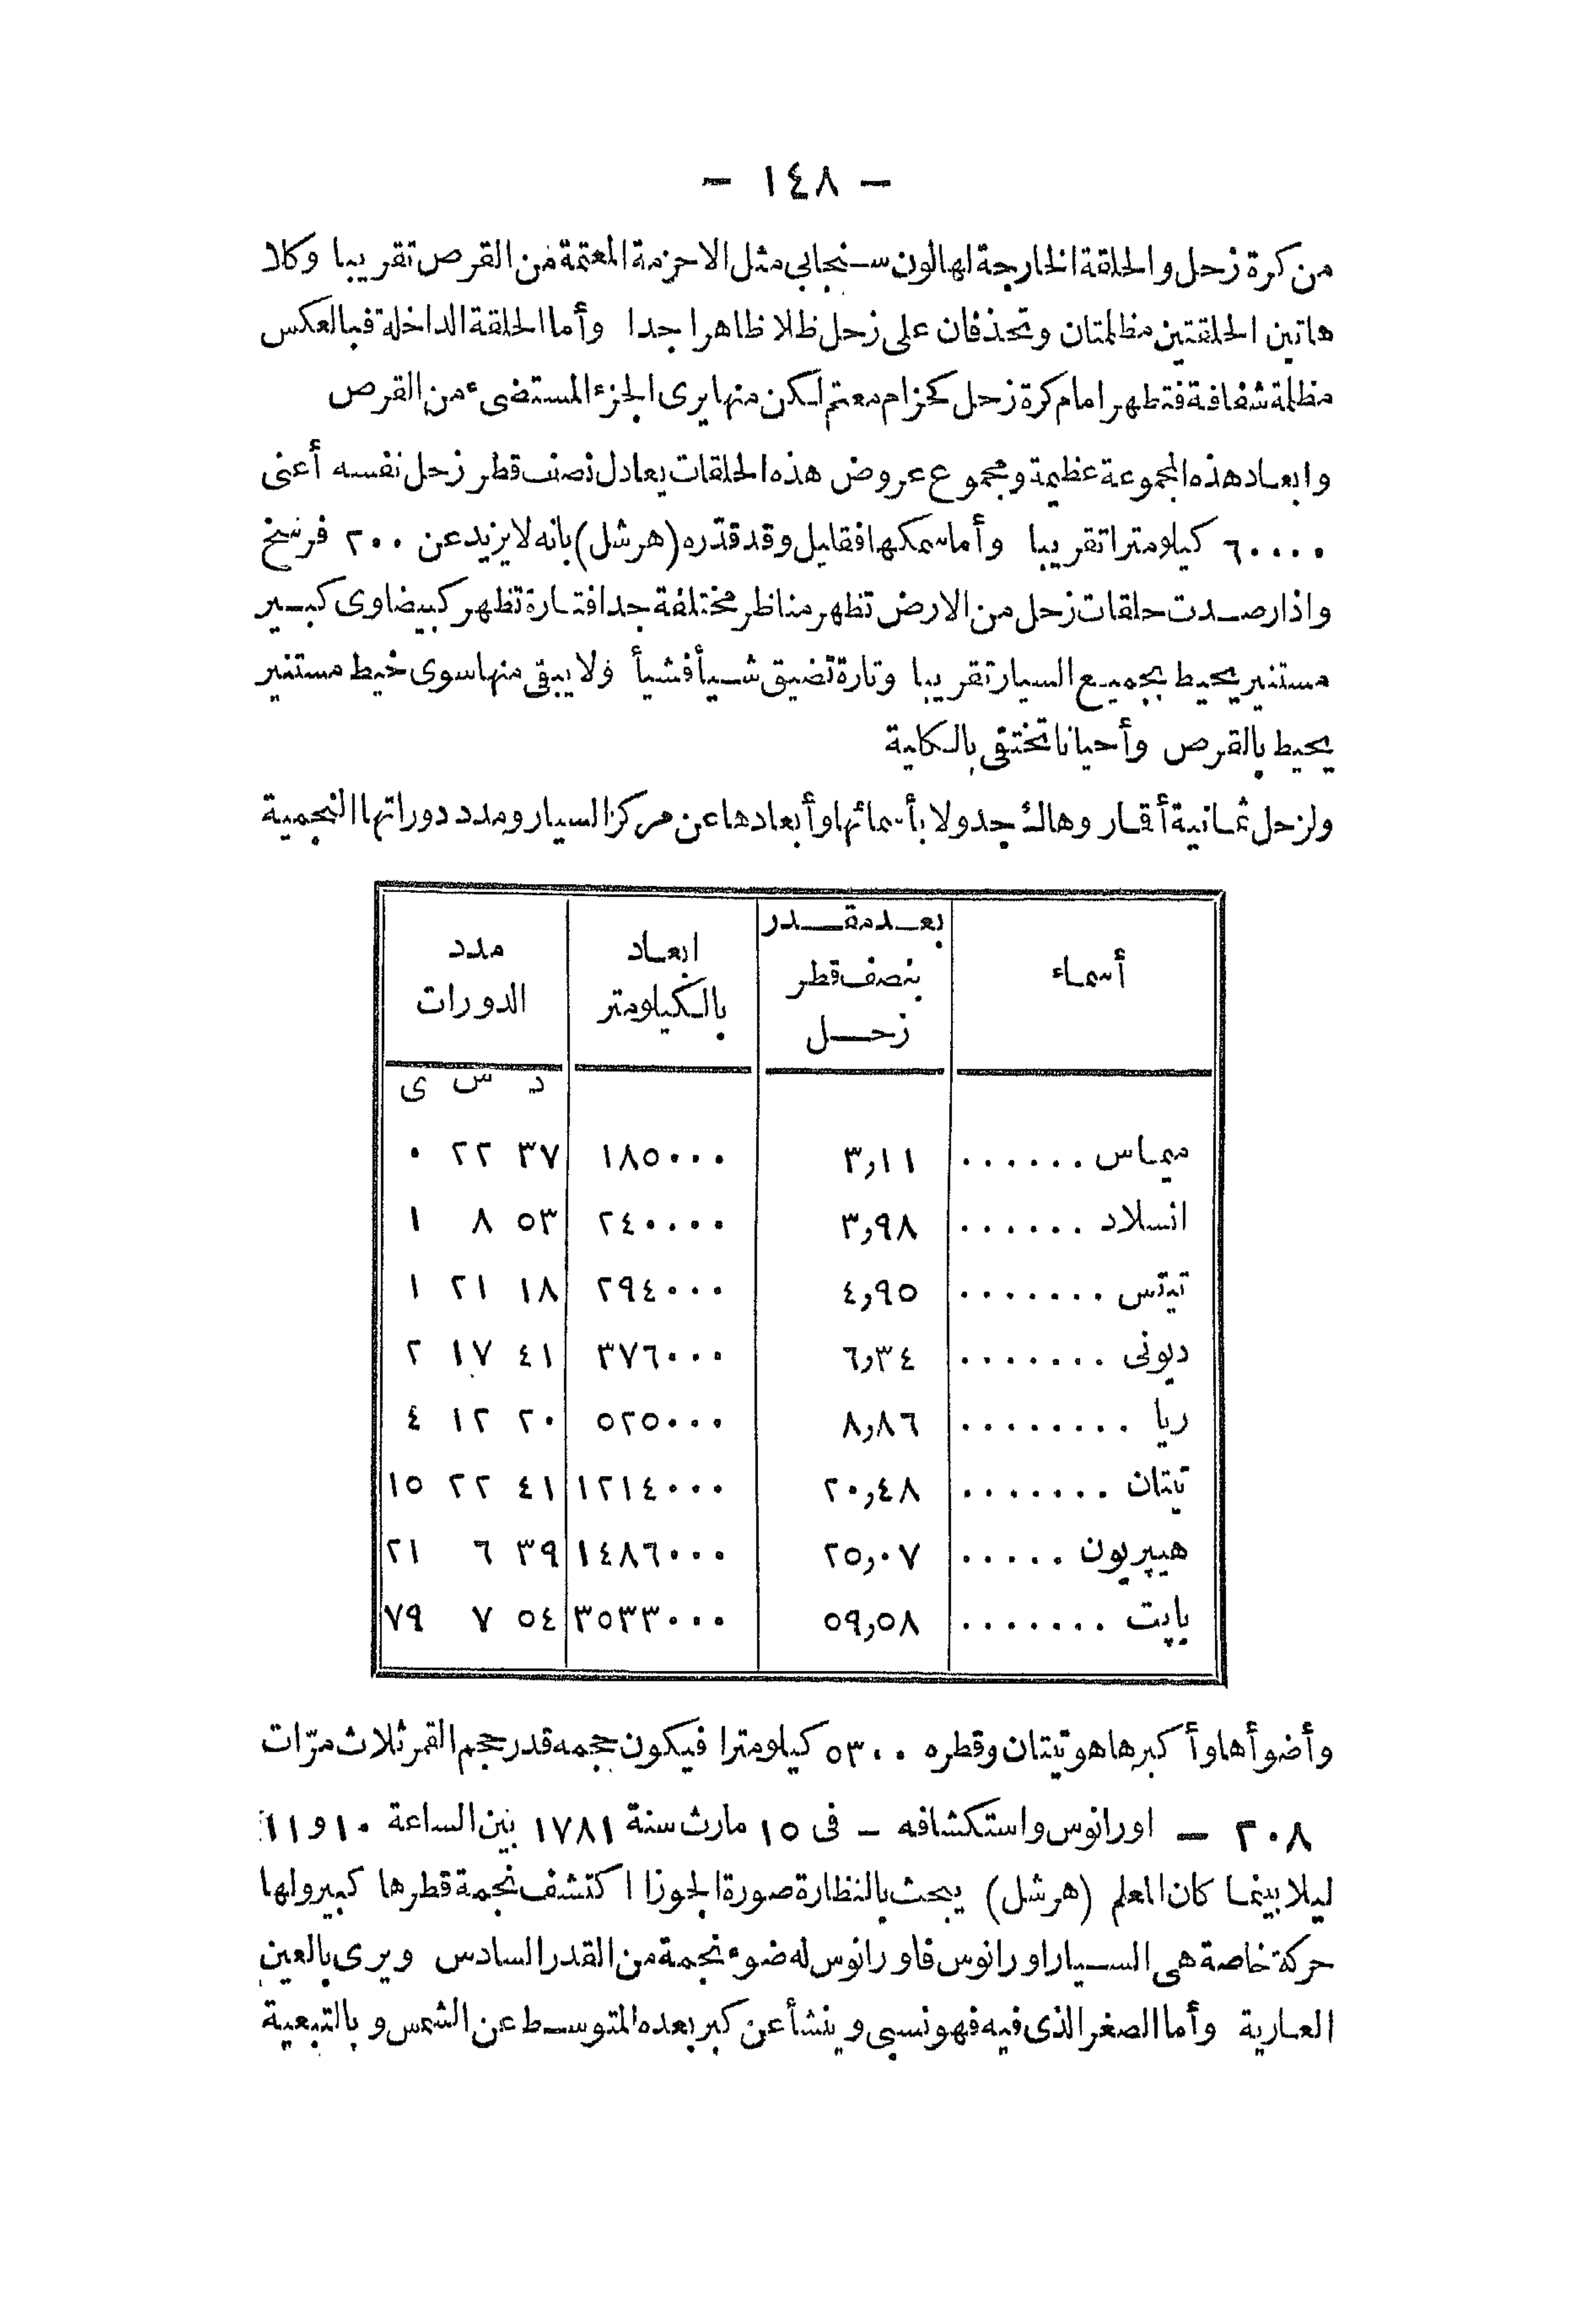 — ١٤٨ —
من كرة زحل والحلقة الخارجة لها لون سنجابي مثل الاحزمة المعتمة من القرص تقريبا وكلا
هاتين الحلقتين مظلمتان وتحذفان على زحل ظلا ظاهرا جدا وأما الحلقة الداخلة فبالعكس
مظلمة شفافة فتظهر امام كرة زحل كحزام معتم لكن منها يرى الجزء المستضىء من القرص
وابعاد هذه المجموعة عظيمة ومجموع عروض هذه الحلقات يعادل نصف قطر زحل نفسه أعنى
٦٠٠٠٠ كيلومترا تقريبا وأما سمكها فقليل وقد قدّره (هرشل) بانه لا يزيد عن ٢٠٠ فرسخ
واذا رصدت حلقات زحل من الارض تظهر مناظر مختلفة جدا فتارة تظهر كبيضاوى كبير
مستنير يحيط بجميع السيار تقريبا وتارة تضيق شيأ فشيأ ولا يبقى منها سوى خيط مستنير
يحيط بالقرص وأحيانا تختفى بالكلية
ولزحل ثمانية أقمار وهاك جدولا بأسمائها وأبعادها عن مركز السيار ومدد دوراتها النجمية
أسماء | بعد مقدر بنصف قطر زحل | ابعاد بالكيلومتر | مدد الدورات
د س ى
ميماس ...... ٣,١١ ١٨٥٠٠٠ ٣٧ ٢٢ ٠
انسلاد ...... ٣,٩٨ ٢٤٠٠٠٠ ٥٣ ٨ ١
تيتس ....... ٤,٩٥ ٢٩٤٠٠٠ ١٨ ٢١ ١
ديونى ....... ٦,٣٤ ٣٧٦٠٠٠ ٤١ ١٧ ٢
ريا ........ ٨,٨٦ ٥٢٥٠٠٠ ٢٠ ١٢ ٤
تيتان ....... ٢٠,٤٨ ١٢١٤٠٠٠ ٤١ ٢٢ ١٥
هيپريون ..... ٢٥,٠٧ ١٤٨٦٠٠٠ ٣٩ ٦ ٢١
ياپت ....... ٥٩,٥٨ ٣٥٣٣٠٠٠ ٥٤ ٧ ٧٩
وأضوأها وأكبرها هو تيتان وقطره ٥٣٠٠ كيلومترا فيكون حجمه قدر حجم القمر ثلاث مرّات
٢٠٨ — اورانوس واستكشافه — فى ١٥ مارث سنة ١٧٨١ بين الساعة ١٠ و ١١
ليلا بينما كان المعلم (هرشل) يبحث بالنظارة صورة الجوزا اكتشف نجمة قطرها كبير ولها
حركة خاصة هى السيار اورانوس فاورانوس له ضوء نجمة من القدر السادس ويرى بالعين
العارية وأما الصغر الذى فيه فهو نسبى وينشأ عن كبر بعده المتوسط عن الشمس وبالتبعية